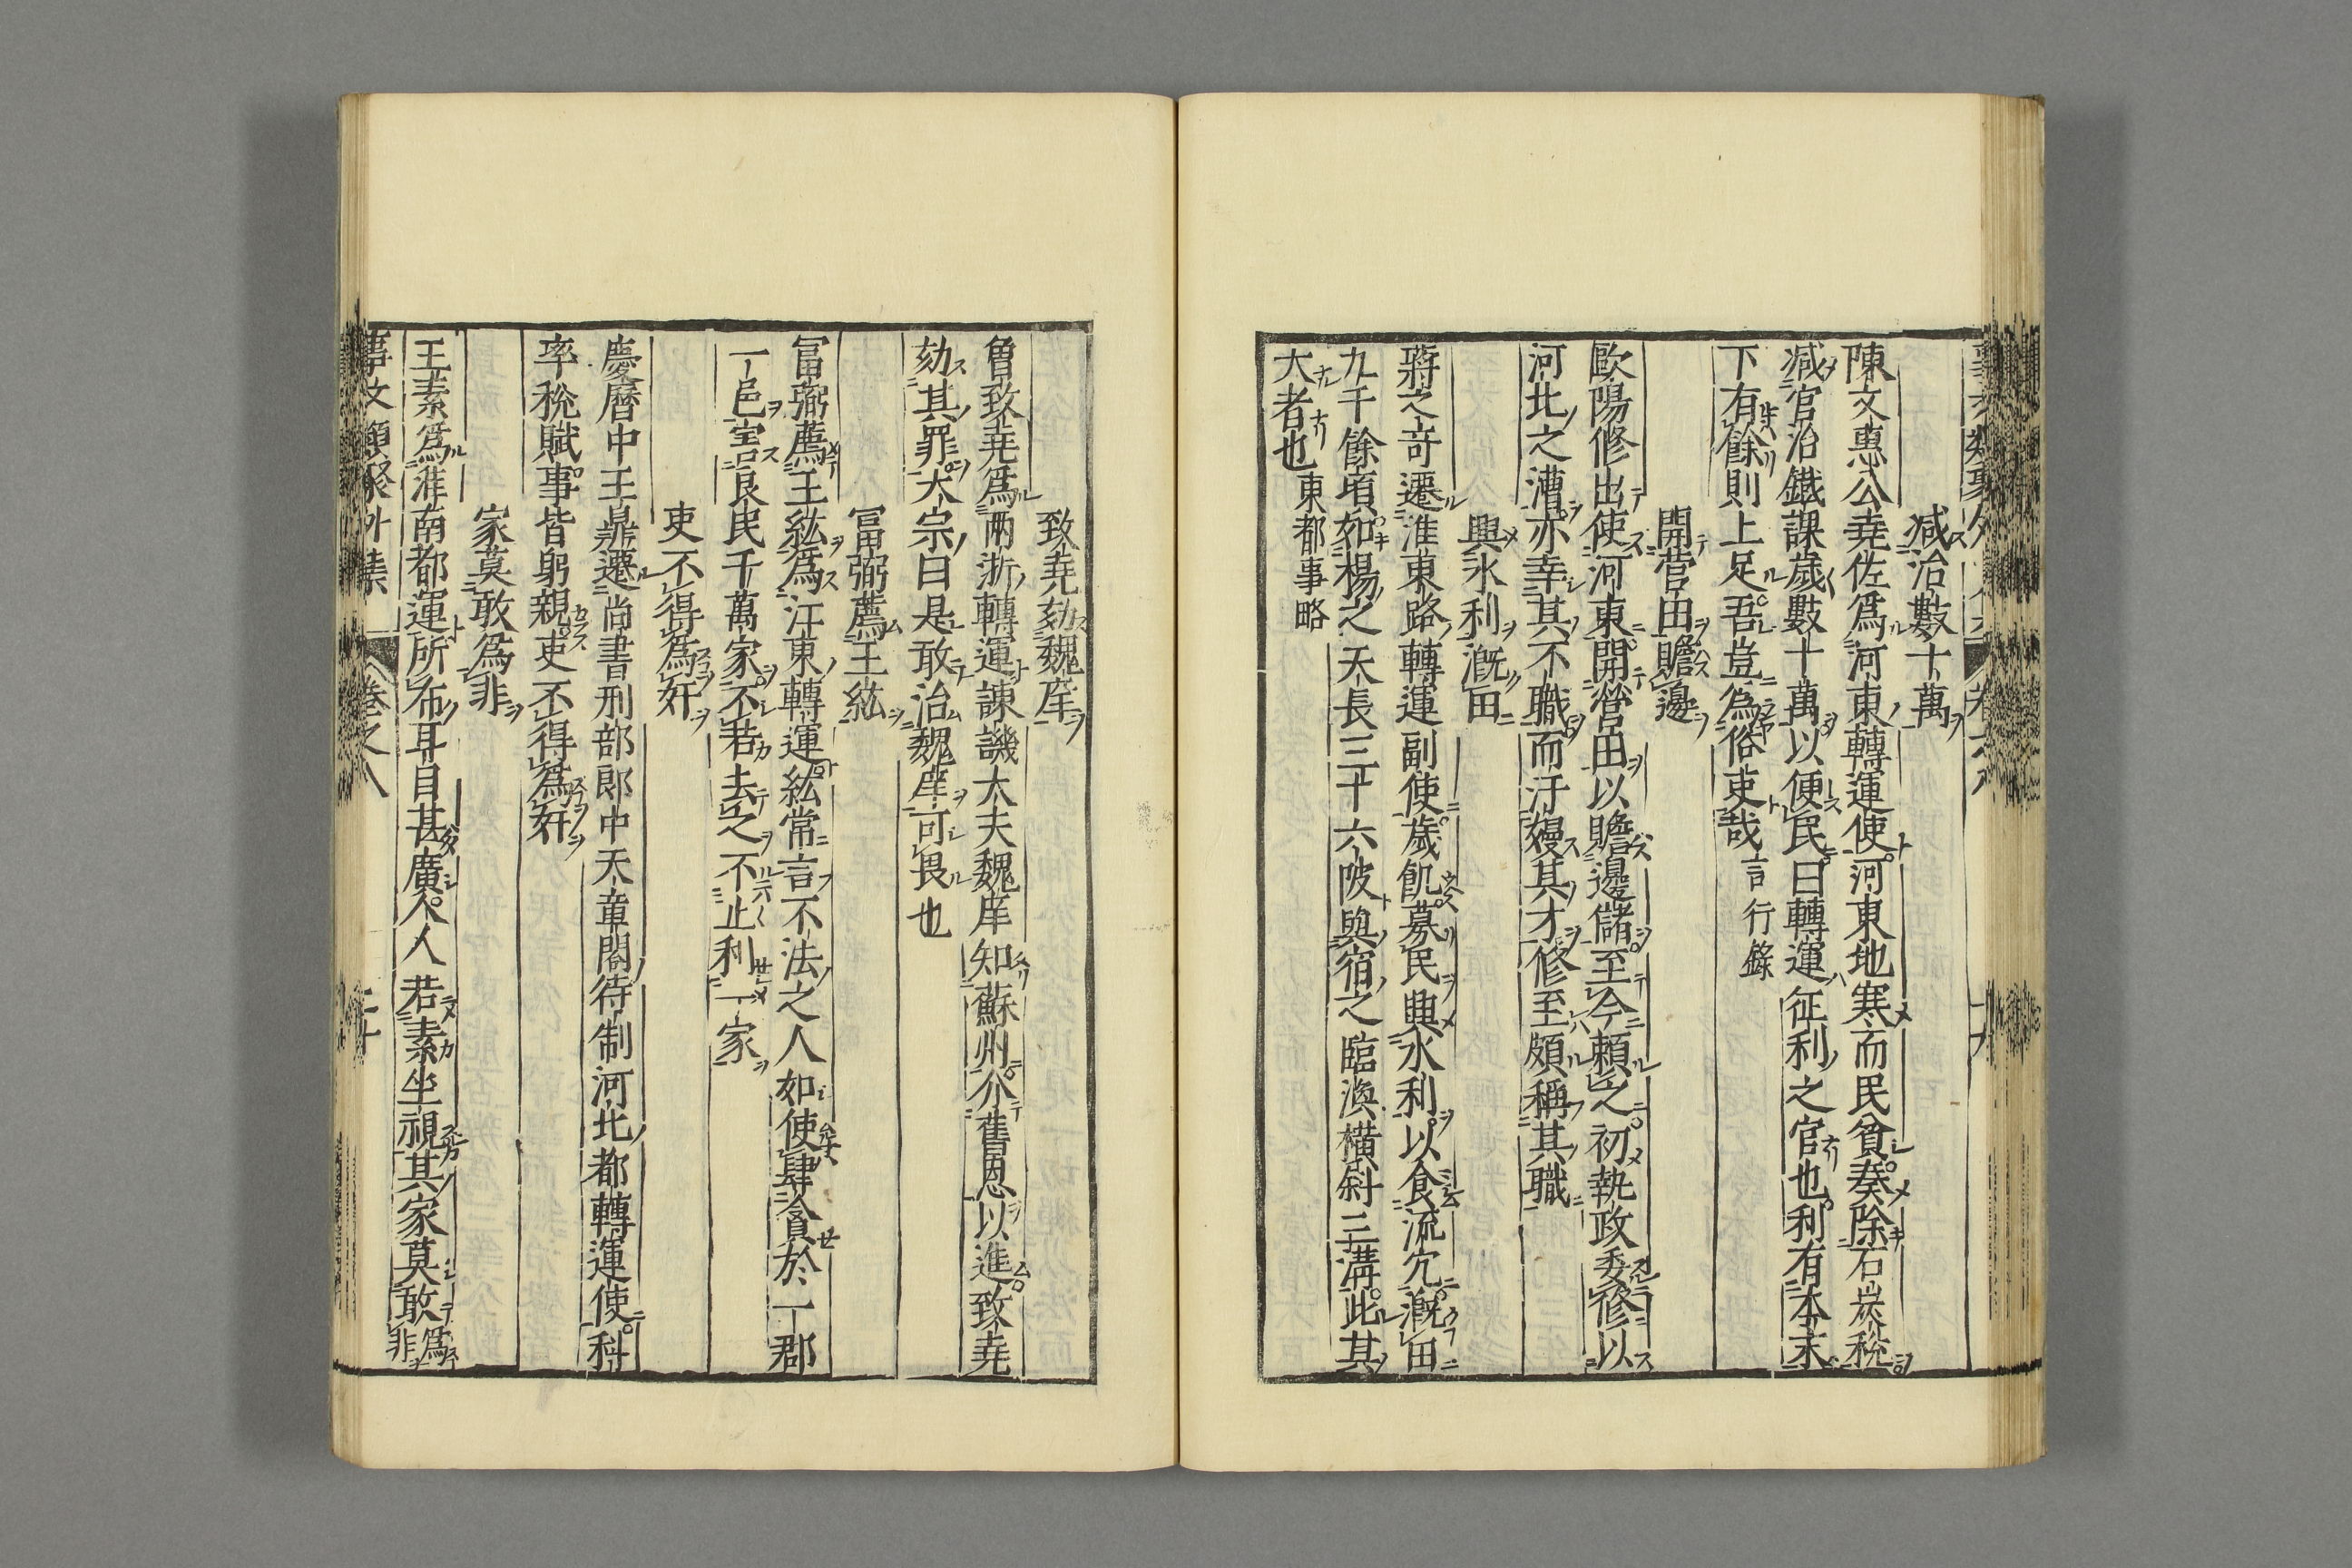 減冶數十萬
陳文惠公堯佐爲河東轉運使河東地寒而民貧奏除石炭稅
減官冶鐵課歲數十萬以便民曰轉運征利之官也利有本末
下有餘則上足吾豈為俗吏哉言行錄
開營田贍邊
歐陽修出使河東開營田以贍邊儲至今頼之初執政委修以
河北之漕亦幸其不職而汙嫚其才修至頗稱其職
興水利漑田
蔣之竒遷淮東路轉運副使歲飢募民興水利以食流宂漑田
九千餘頃如楊之天長三十六陂與宿之臨渙横斜三溝此其
大者也東都事略
致堯劾魏庠
曽致堯爲兩浙轉運諫議大夫魏庠知蘇州介舊恩以進致堯
劾其罪太宗曰是敢治魏庠可畏也
冨弼薦王紘
冨弼薦王紘爲江東轉運紘常言不法之人如使肆貪於一郡
一邑害良民千萬家不若去之不止利一家
吏不得爲奸
慶曆中王鼎遷尚書刑部郎中天章閣待制河北都轉運使科
率稅賦事皆躬親吏不得爲奸
家莫敢爲非
王素爲淮南都運所布耳目甚廣人人若素坐視其家莫敢爲非
事文類聚外集 卷之八 二十